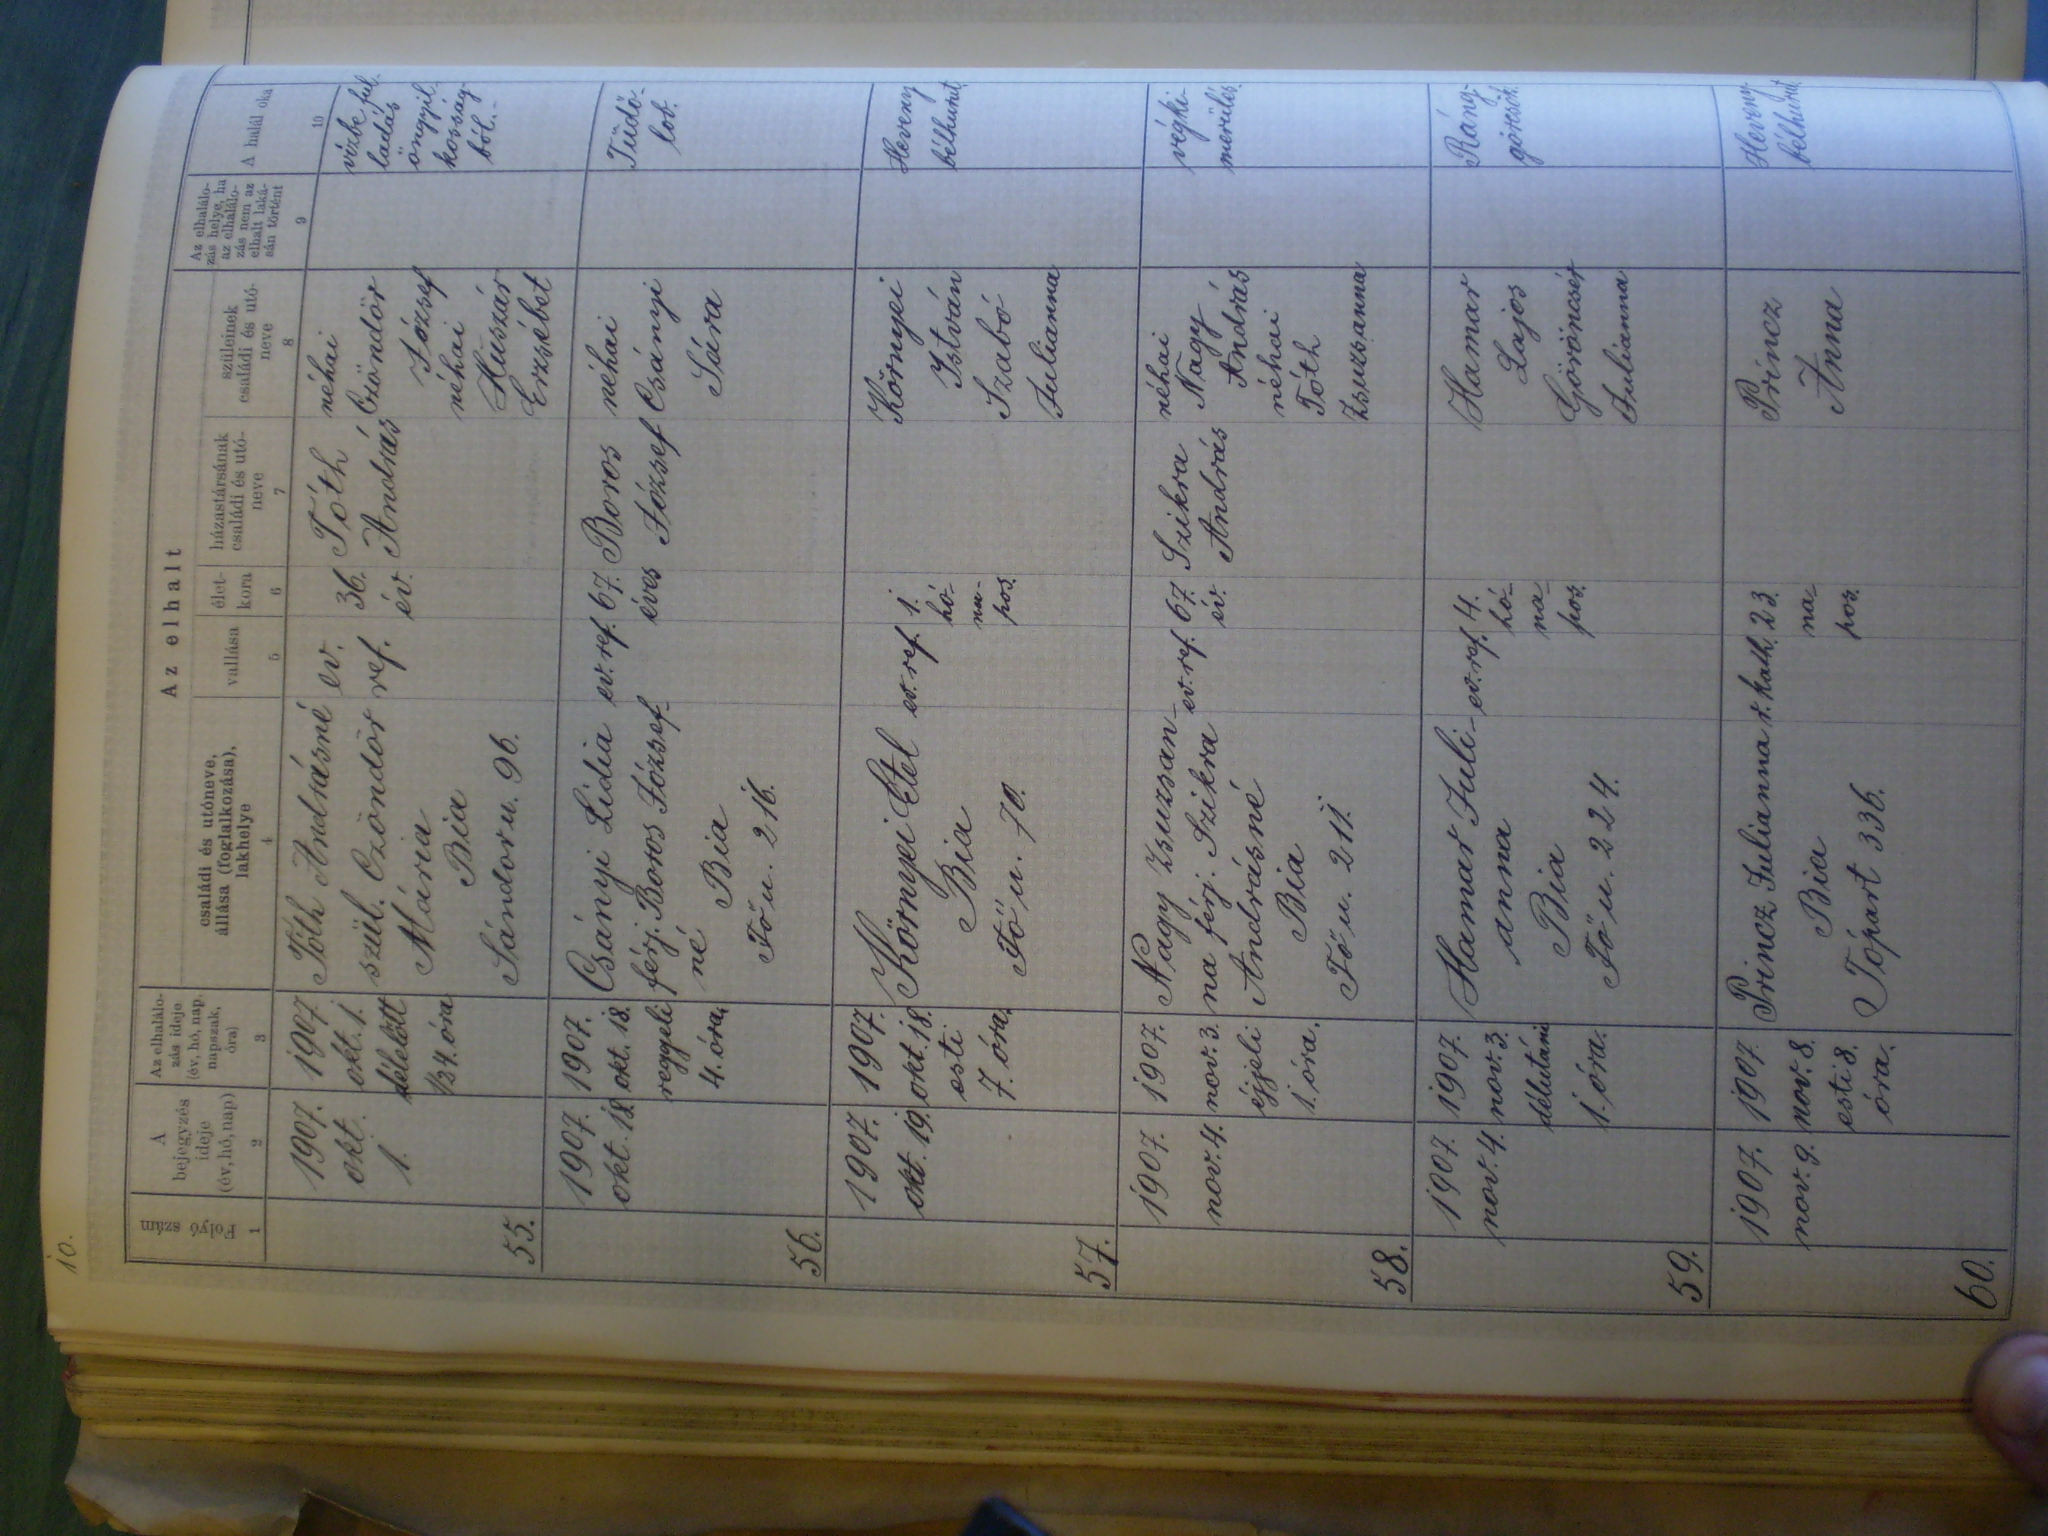 10.
Folyó szám
A bejegyzés ideje (év, hó, nap)
Az elhalálozás ideje (év, hó, nap, napszak, óra)
Az elhalt
családi és utóneve, állása (foglalkozása), lakhelye
vallása
élet-kora
házastársának családi és utó-neve
szüleinek családi és utó-neve
Az elhalálo-zás helye, ha az elhalálo-zás nem az elhalt laká-sán történt
A halál oka
1 2 3 4 5 6 7 8 9 10
55.
1907.
okt.
1.
1907
okt. 1.
délelőtt
1/2 4. óra
Tóth Andrásné
szül. Czöndör
Mária
Bia
Sándor u. 96.
ev.
ref.
36.
év.
Tóth
András
néhai
Czöndör
József
néhai
Huszár
Erzsébet
vízbe ful-
ladás
öngyil-
kosság-
ból.-
56.
1907.
okt. 18.
1907.
okt. 18.
reggeli
4. óra.
Csányi Lidia
férj. Boros József-
né
Bia
Fő u. 216.
ev. ref.
67.
éves
Boros
József
néhai
Csányi
Sára
Tüdő-
lob.
57.
1907.
okt. 19.
1907.
okt. 18.
esti
7. óra.
Környei Etel
Bia
Fő u. 70.
ev. ref.
1.
hó-
na-
pos.
Környei
István
Szabó
Julianna
Heveny
bélhurut
58.
1907.
nov. 4.
1907.
nov. 3.
éjjeli
1. óra.
Nagy Zsuzsan-
na férj. Szikra
Andrásné
Bia
Fő u. 211.
ev. ref.
67.
év.
Szikra
András
néhai
Nagy
András
néhai
Tóth
Zsuzsanna
végki-
merülés
59.
1907.
nov. 4.
1907.
nov. 3.
délutáni
1. óra.
Hamar Juli-
anna
Bia
Fő u. 224.
ev. ref.
4.
hó-
na-
pos.
Hamar
Lajos
Göröncsér
Julianna
Ráng-
görcsök.
60.
1907.
nov. 9.
1907.
nov. 8.
esti 8.
óra.
Princz Julianna
Bia
Tópart 336.
r. kath.
23.
na-
pos.
Princz
Anna
Heveny
bélhurut